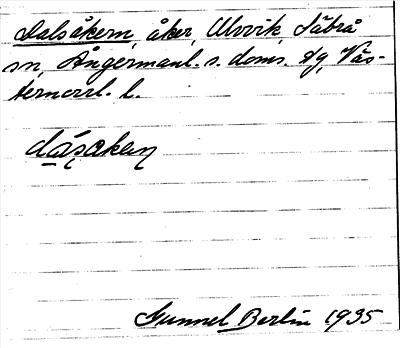 Dalsåkern, åker, Ulvvik, Säbrå
sn, Ångermanl. s. doms. tg, Väs-
ternorrl. l.
Gunnel Berlin 1935